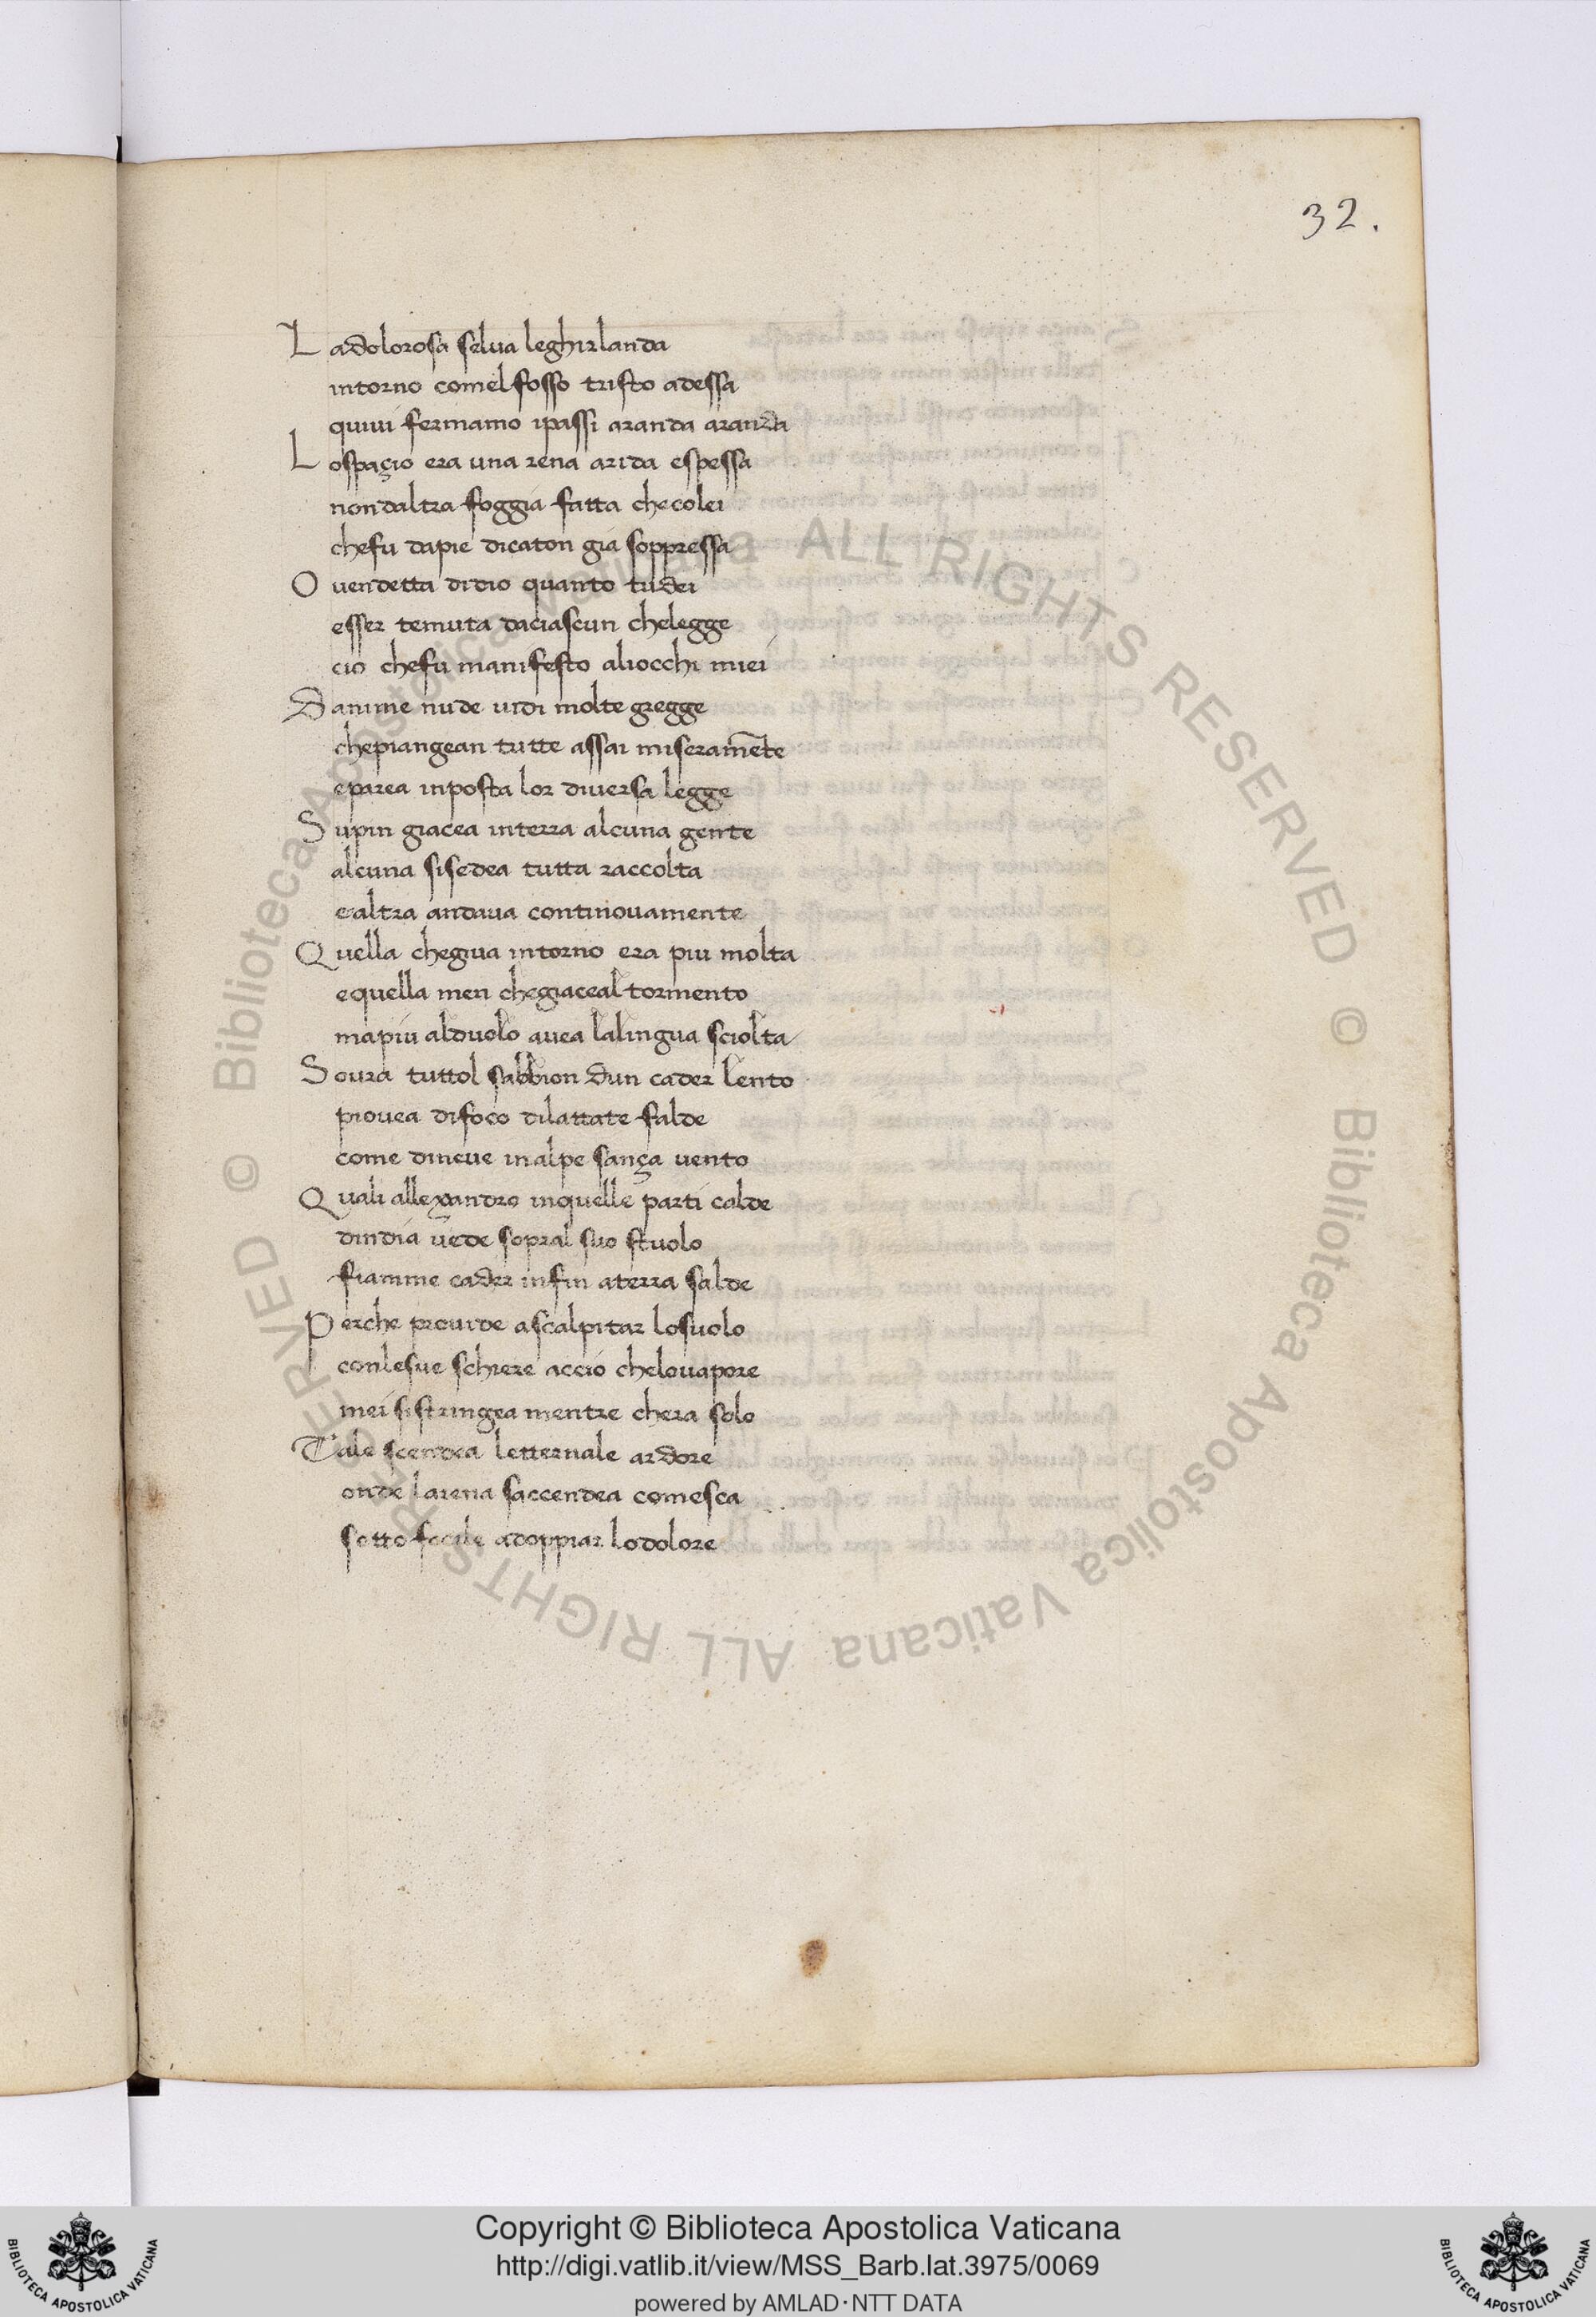 32.
L adolorosa selua leghirlanda
intorno comel fosso tristo adessa
quiui fermamo ipassi aranda aranda
L ospaçio era una rena arida espessa
nondaltra foggia fatta checolei
chefu dapie dicaton gia soppressa
O uendetta didio quanto tudei
esser temuta daciascun chelegge
cio chefu manifesto aliocchi miei
D anime nude uidi molte gregge
chepiangean tutte assai miseram̄ete
eparea inposta lor diuersa legge
S upin giacea interra alcuna gente
alcuna sisedea tutta raccolta
ealtra andaua continouamente
Q uella chegiua intorno era piu molta
equella men chegiaceal tormento
mapiu alduolo auea lalingua sciolta
S oura tuttol sabbion dun cader lento
piouea difoco dilattate falde
come dineue inalpe sança uento
Q uali allexandro inquelle parti calde
dindia uede sopral suo stuolo
fiamme cader infin aterra salde
P erche prouide ascalpitar losuolo
conlesue schiere accio chelouapore
mei sistringea mentre chera solo
T ale scendea letternale ardore
onde larena saccendea comesca
sotto focile adoppiar lodolore
© Biblioteca Apostolica Vaticana ALL RIGHTS RESERVED © Biblioteca Apostolica Vaticana ALL RIGHTS RESERVED
Copyright © Biblioteca Apostolica Vaticana
http://digi.vatlib.it/view/MSS_Barb.lat.3975/0069
powered by AMLAD·NTT DATA
BIBLIOTECA APOSTOLICA VATICANA
BIBLIOTECA APOSTOLICA VATICANA